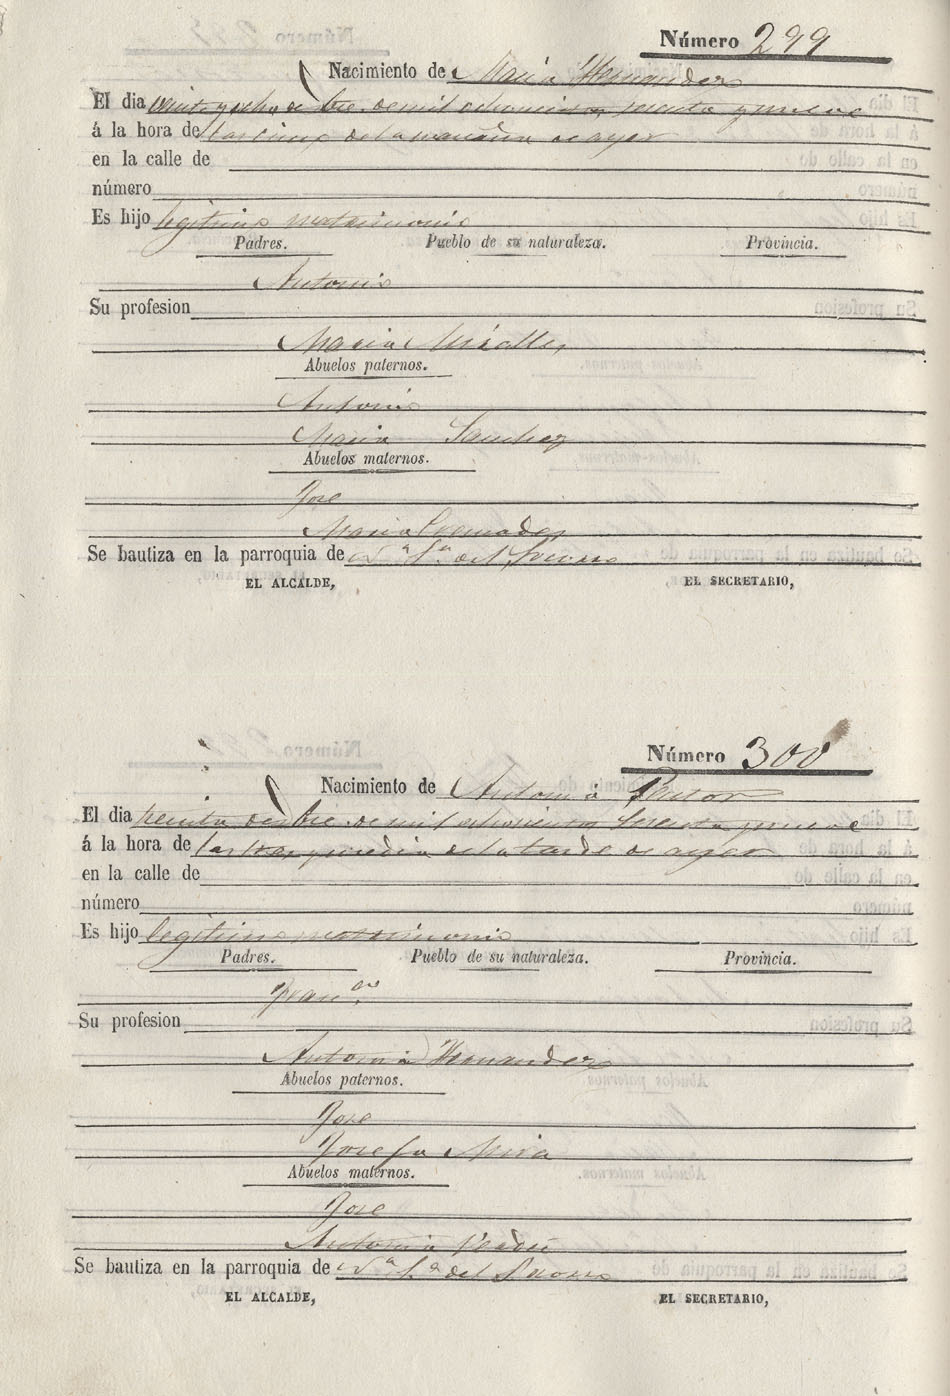 Número 299
Nacimiento de Maria Hernandez
El dia veinte y ocho de bre. de mil ochocientos sesenta y nueve
á la hora de las cinco de la mañana de ayer
en la calle de
número
Es hijo legitimo matrimonio
Padres. Pueblo de su naturaleza. Provincia.
Antonio
Su profesion
Maria Miralles
Abuelos paternos.
Antonio
Maria Sanchez
Abuelos maternos.
Jose
Maria
Se bautiza en la parroquia de N.ª S.ª del Socorro
EL ALCALDE, EL SECRETARIO,
Número 300
Nacimiento de Antonia Pastor
El dia treinta de bre. de mil ochocientos sesenta y nueve
á la hora de las tres y media de la tarde de ayer
en la calle de
número
Es hijo legitimo matrimonio
Padres. Pueblo de su naturaleza. Provincia.
Fran.co
Su profesion
Antonia Hernandez
Abuelos paternos.
Jose
Josefa Mira
Abuelos maternos.
Jose
Antonia Verdú
Se bautiza en la parroquia de N.ª S.ª del Socorro
EL ALCALDE, EL SECRETARIO,